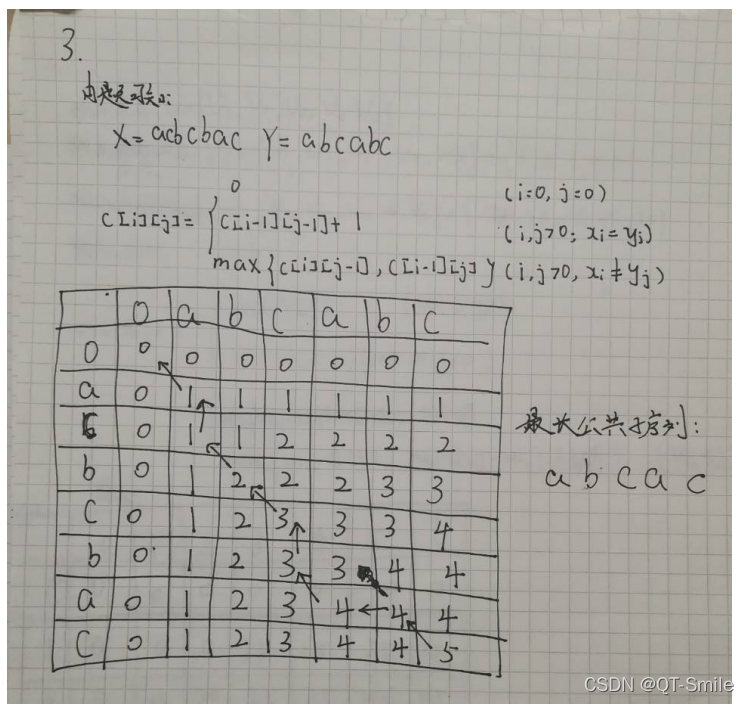 3.
由题可知:
X= acbcbac Y= abcabc
0 (i=0, j=0)
C[i][j]= { C[i-1][j-1]+ 1 (i,j>0; xi= yj)
max{C[i][j-1], C[i-1][j]} (i,j>0, xi≠yj)
0 a b c a b c
0 0 0 0 0 0 0 0
a 0 1 1 1 1 1 1
c 0 1 1 2 2 2 2
b 0 1 2 2 2 3 3
C 0 1 2 3 3 3 4
b 0 1 2 3 3 4 4
a 0 1 2 3 4 4 4
C 0 1 2 3 4 4 5
最大公共子序列:
a b c a c
CSDN @QT-Smile